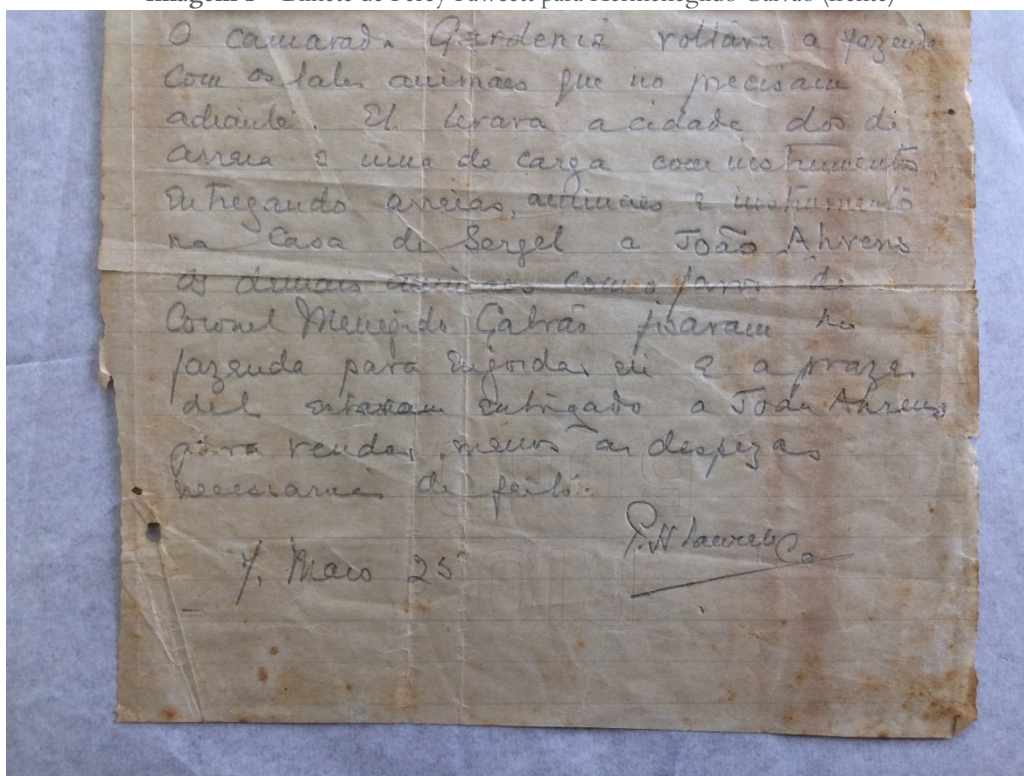 Imagem 1 – Bilhete de Percy Fawcett para Hermenegildo Galvão (frente)
O camarada Gardenia voltara a fazenda
com os tales animães que no precisam
adiante. El levara a cidade dos di
arreia e uma de carga com instrumentos,
entregando arreias, animaes e instrumento
na Casa di Sergel a João Ahrens.
os demais animaes como faros di
Coronel Menegido Galvão ficaram na
fazenda para engordar eii e a praze
del estaram entrigado a João Ahrens
para vender, menos as despezas
necessarias de feito.
P.H. Fawcett
7. Maio 25